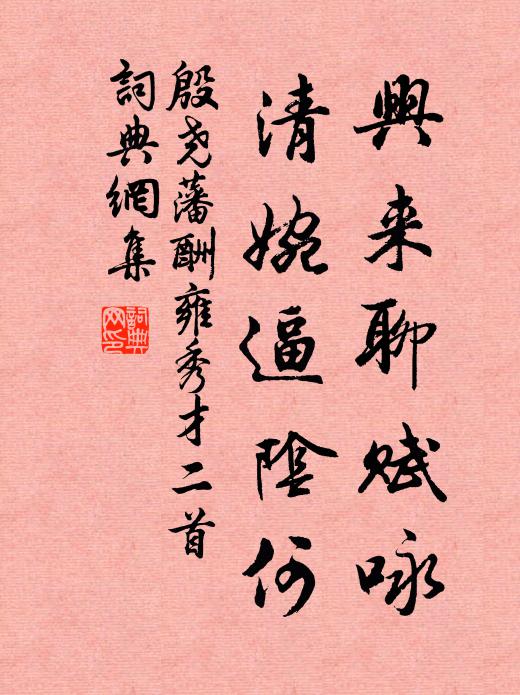 興来聊赋咏
清婉逼陰何
殷尧藩酬雍秀才二首
詞典網集
詞典网印